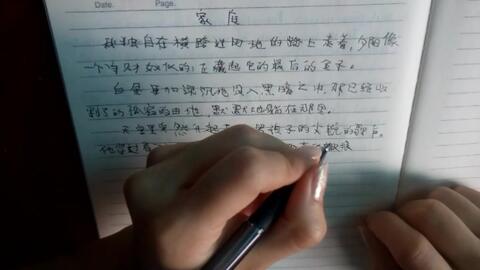 Date.
Page.
家庭
我独自在横跨过田地的路上走着,夕阳像
一个守财奴似的,正藏起它的最后的金子。
白昼更加深沉地没入黑暗之中,那已经收
割了的孤寂的田地,默默地躺在那里。
天空里突然升起了 男孩子的尖锐的歌声。
他穿过看 的辙痕